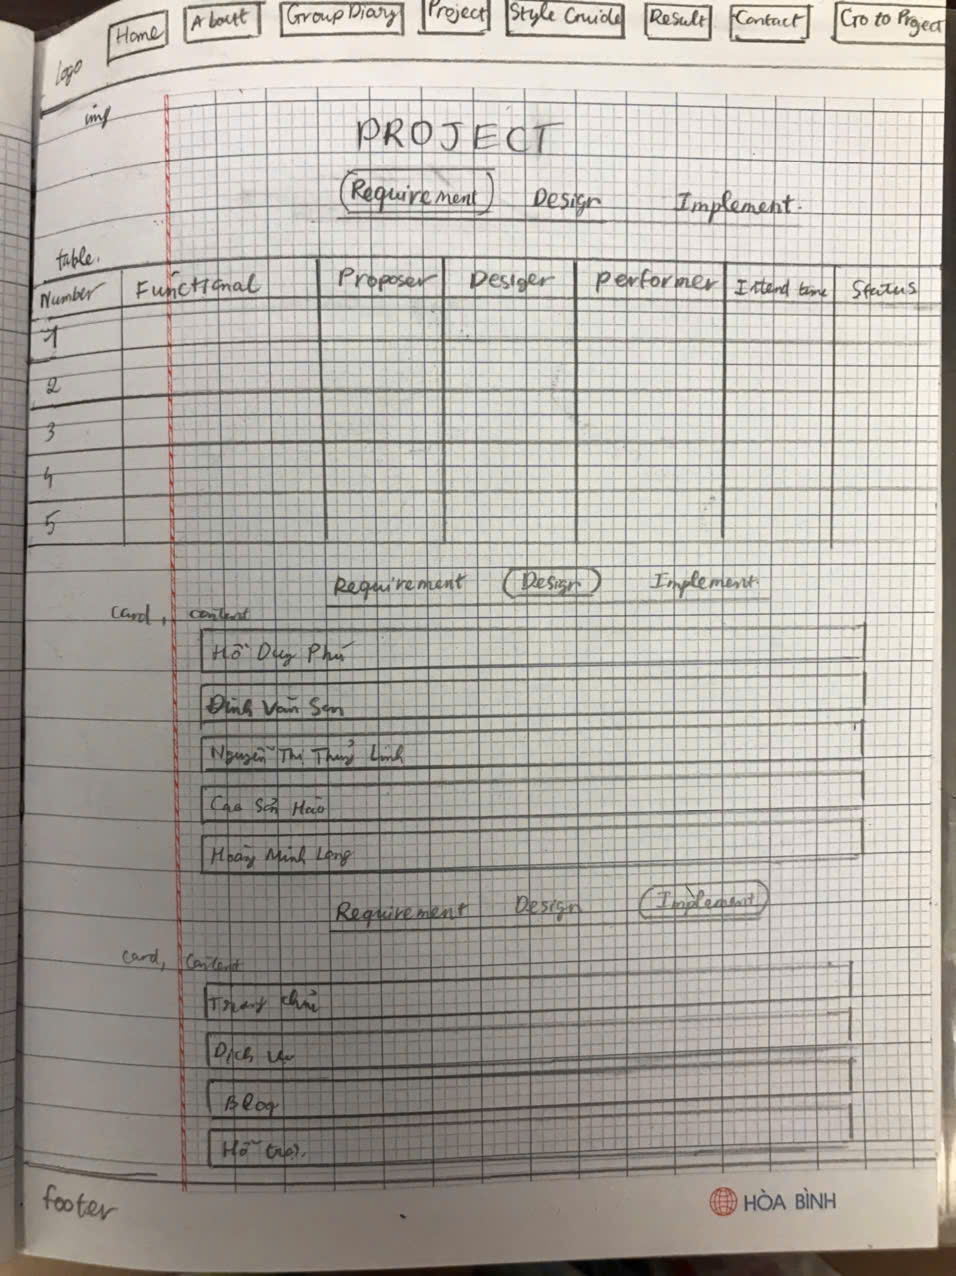 logo Home Aboutt Group Diary Project Style Gruide Result Contact Gro to Project
img
PROJECT
Requirement Design Implement.
table.
Number Functional Proposer Desiger performer Intend time Status
1
2
3
4
5
Requirement Design Implement.
card, content
Hồ Duy Phú
Đinh Văn Sen
Nguyễn Thị Thuỳ Linh
Cao Sơn Hào
Hoàng Minh Long
Requirement Design Implement
card, content
Trang chủ
Dịch vụ
Blog
Hỗ trợ.
footer
HÒA BÌNH